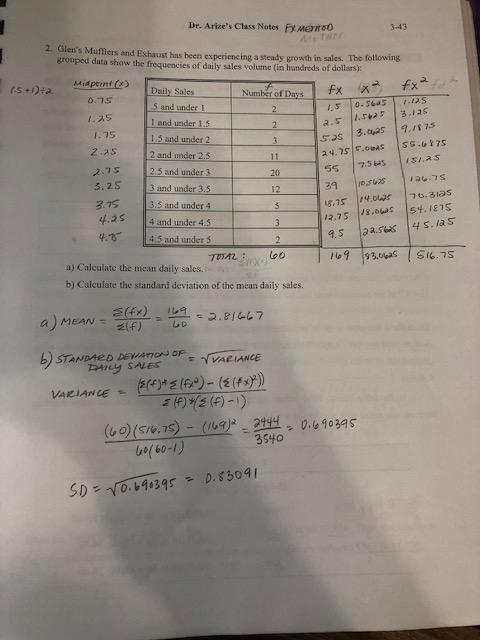 Dr. Arize's Class Notes FX METHOD 3-43
2. Glen's Mufflers and Exhaust has been experiencing a steady growth in sales. The following
grouped data show the frequencies of daily sales volume (in hundreds of dollars):
(.5+1)÷2 Midpoint (x) Daily Sales f Number of Days fx x² fx²
0.75 .5 and under 1 2 1.5 0.5625 1.125
1.25 1 and under 1.5 2 2.5 1.5625 3.125
1.75 1.5 and under 2 3 5.25 3.0625 9.1875
2.25 2 and under 2.5 11 24.75 5.0625 55.6875
2.75 2.5 and under 3 20 55 7.5625 151.25
3.25 3 and under 3.5 12 39 10.5625 126.75
3.75 3.5 and under 4 5 18.75 14.0625 70.3125
4.25 4 and under 4.5 3 12.75 18.0625 54.1875
4.75 4.5 and under 5 2 9.5 22.5625 45.125
TOTAL: 60 169 83.0625 516.75
a) Calculate the mean daily sales.
b) Calculate the standard deviation of the mean daily sales.
a) MEAN = Σ(fx) / Σ(f) = 169 / 60 = 2.81667
b) STANDARD DEVIATION OF DAILY SALES = √VARIANCE
VARIANCE = (Σ(f)*Σ(fx²) - (Σ(fx)²)) / Σ(f)*(Σ(f)-1)
(60)(516.75) - (169)² / 60(60-1) = 2444 / 3540 = 0.690395
SD = √0.690395 = 0.83091